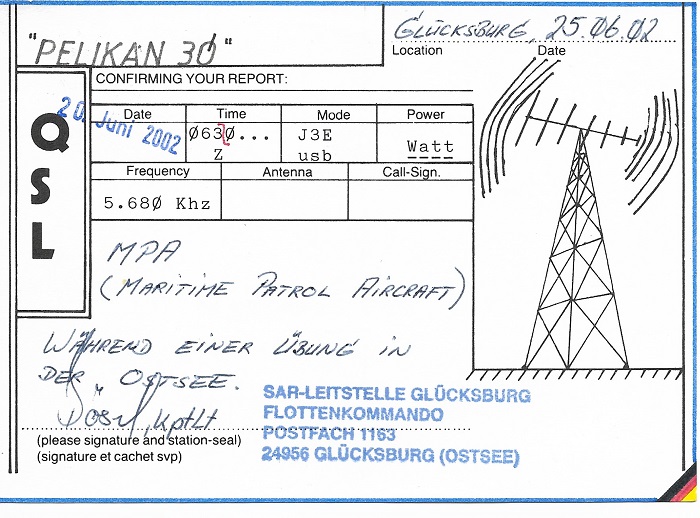 "PELIKAN 30"
GLÜCKSBURG, 25.06.02
Location Date
CONFIRMING YOUR REPORT:
QSL
Date Time Mode Power
20. Juni 2002 Ø63Ø... J3E Watt
Z usb ----
Frequency Antenna Call-Sign.
5.68Ø Khz
MPA
(MARITIME PATROL AIRCRAFT)
WÄHREND EINER ÜBUNG IN
DER OSTSEE.
KptLt
SAR-LEITSTELLE GLÜCKSBURG
FLOTTENKOMMANDO
POSTFACH 1163
24956 GLÜCKSBURG (OSTSEE)
(please signature and station-seal)
(signature et cachet svp)